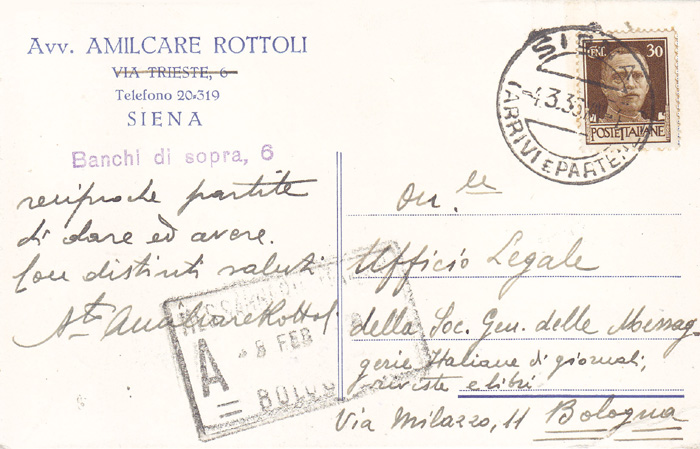 Avv. AMILCARE ROTTOLI
VIA TRIESTE, 6
Telefono 20-319
SIENA
Banchi di sopra, 6
reciproche partite
di dare ed avere.
Con distinti saluti
Amilcare Rottoli
CENT. 30
POSTE ITALIANE
SIE
-4.3.35
(ARRIVI E PARTENZ
On.le
Ufficio Legale
della Soc. Gen. delle Messag-
gerie Italiane di giornali,
riviste e libri
Via Milazzo, 11 Bologna
A
8 FEB
BOLOG